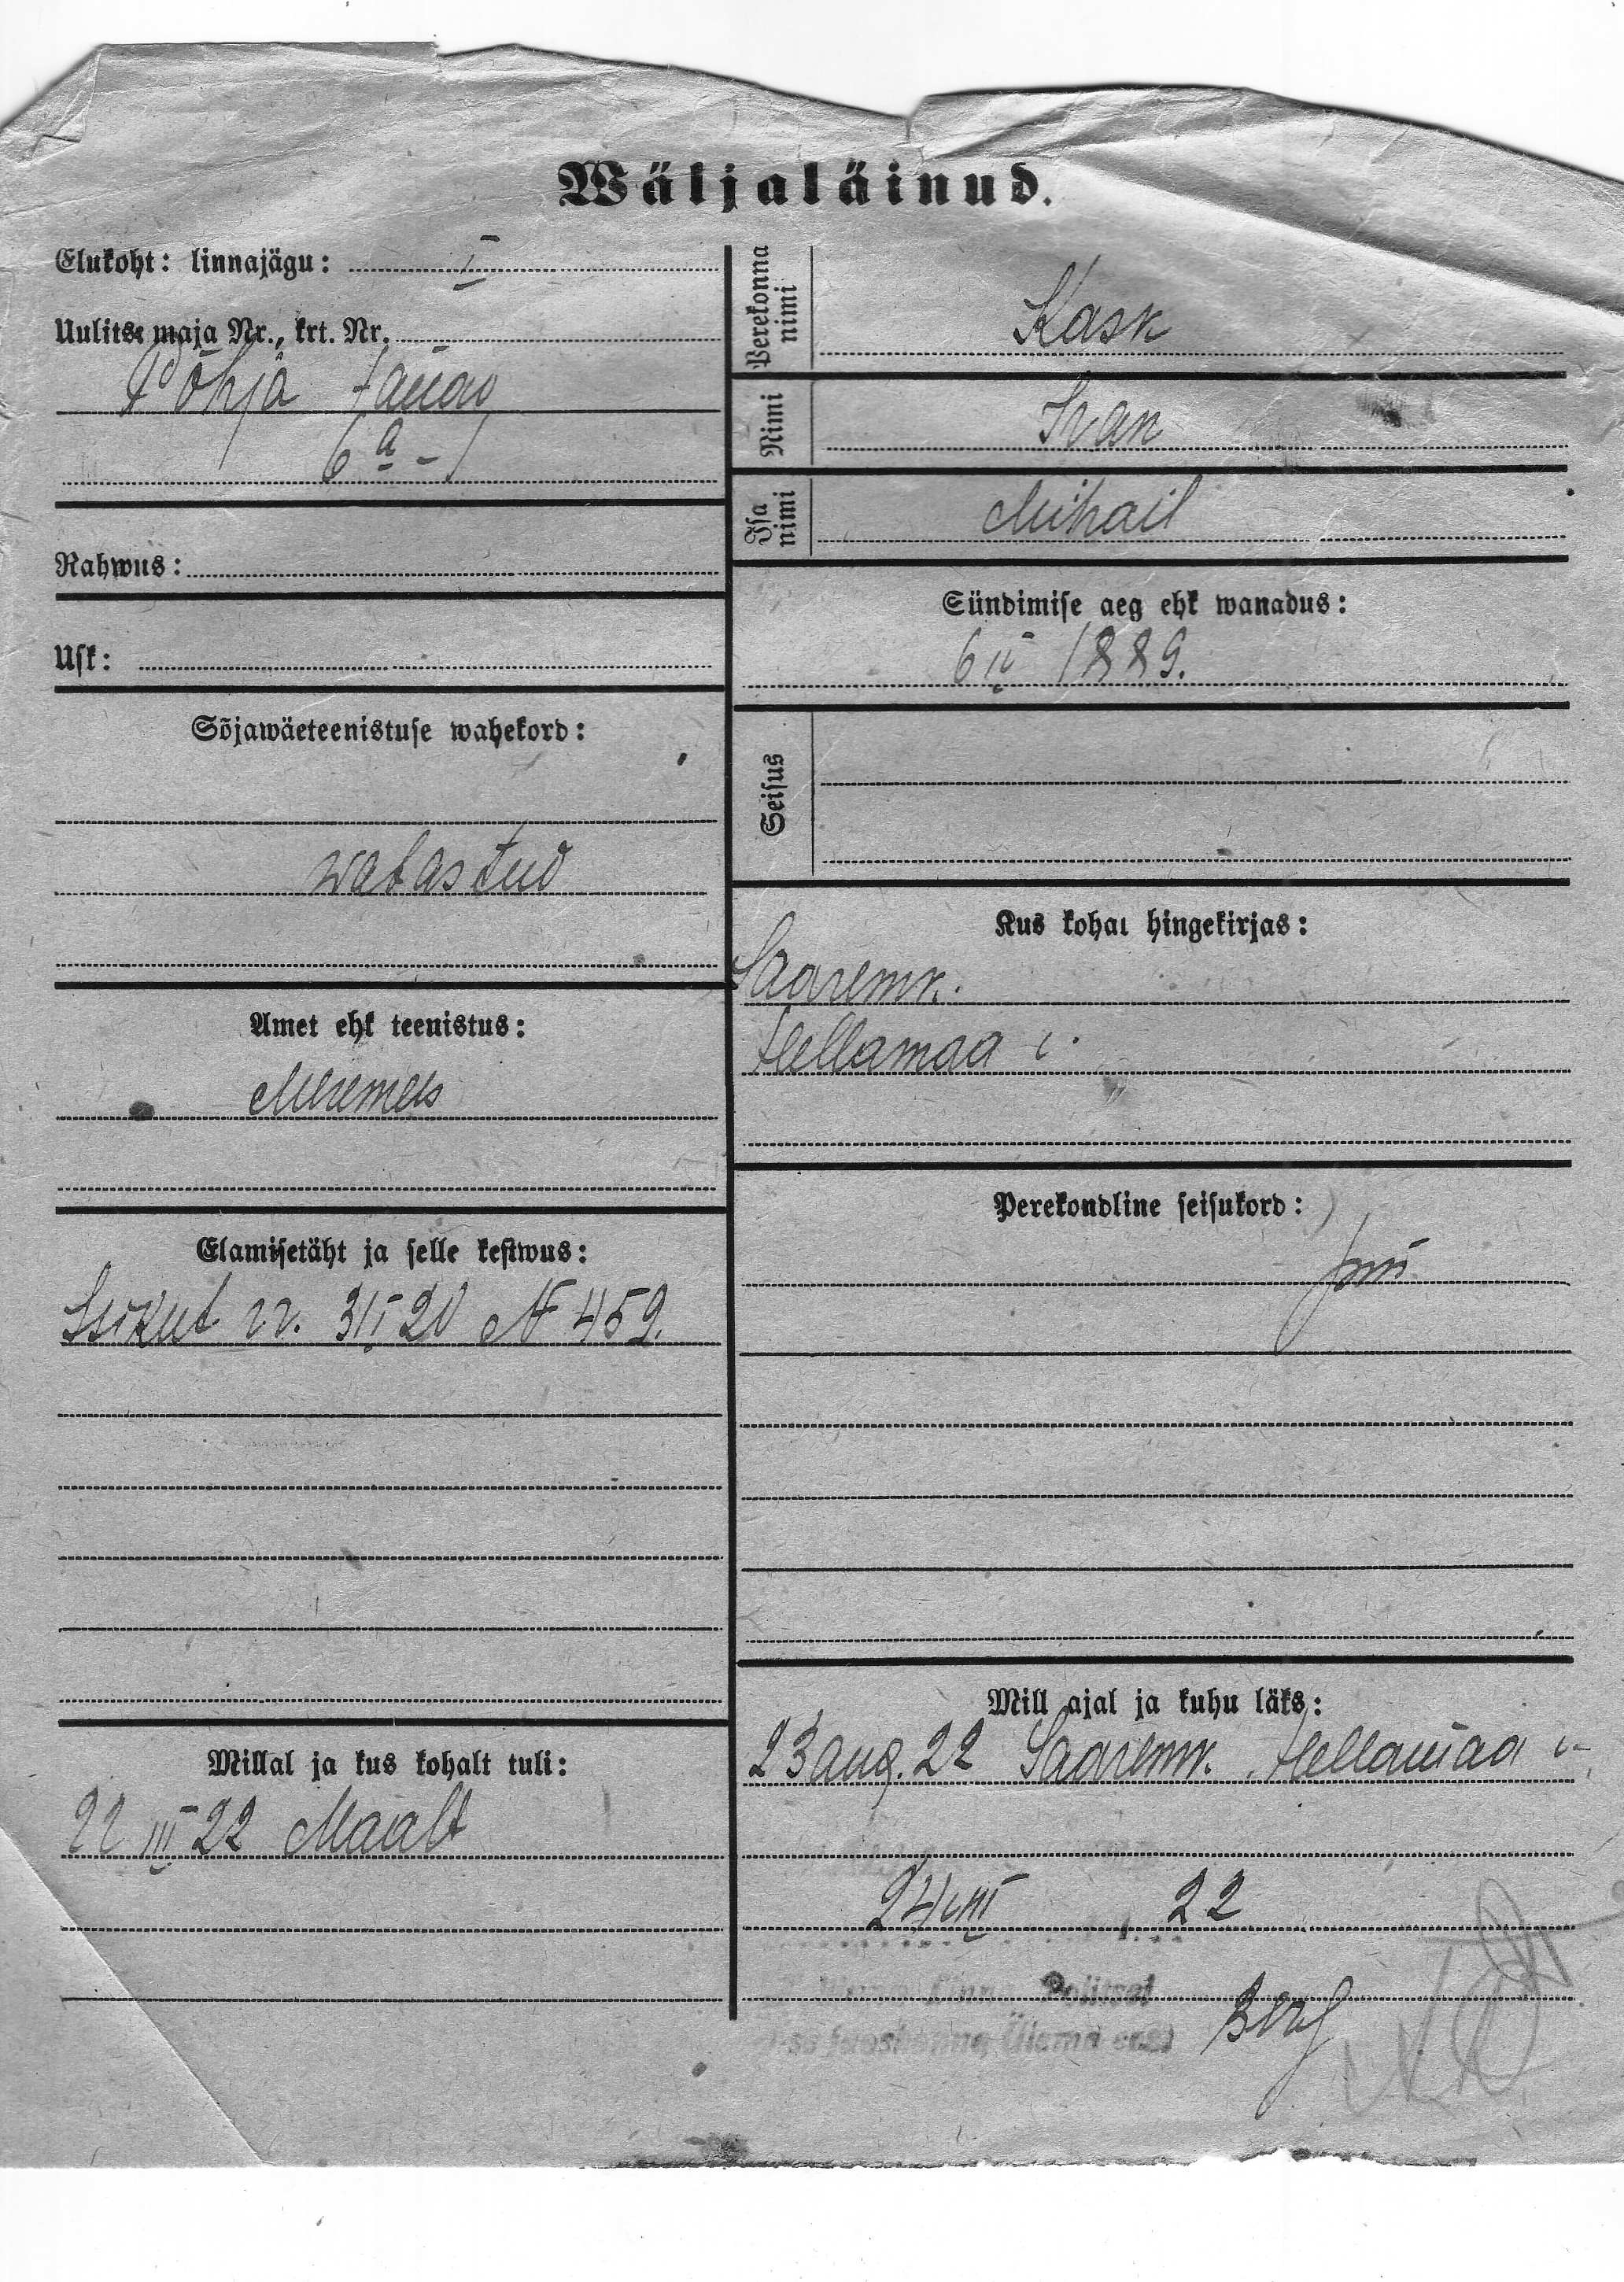 Wäljaläinud.
Elukoht: linnajägu: I
Uulits, maja Nr., krt. Nr.
Põhja tänav
6a - 1
Rahwus:
Usk:
Sõjawäeteenistuse wahekord:
wabastud
Amet ehk teenistus:
Meremees
Elamisetäht ja selle kestwus:
Isikut tt. 3 I 20 № 459.
Millal ja kus kohalt tuli:
22 III 22 Maalt
Perekonna nimi
Kask
Nimi
Ivan
Isa nimi
Mihail
Sündimise aeg ehk wanadus:
6 II 1889.
Seisus
Kus kohal hingekirjas:
Saarem.
Hellamaa v.
Perekondline seisukord:
Mill ajal ja kuhu läks:
23 aug. 22 Saarem. Hellamaa v.
24 VIII 22
Politsei
Ülema eest Berg